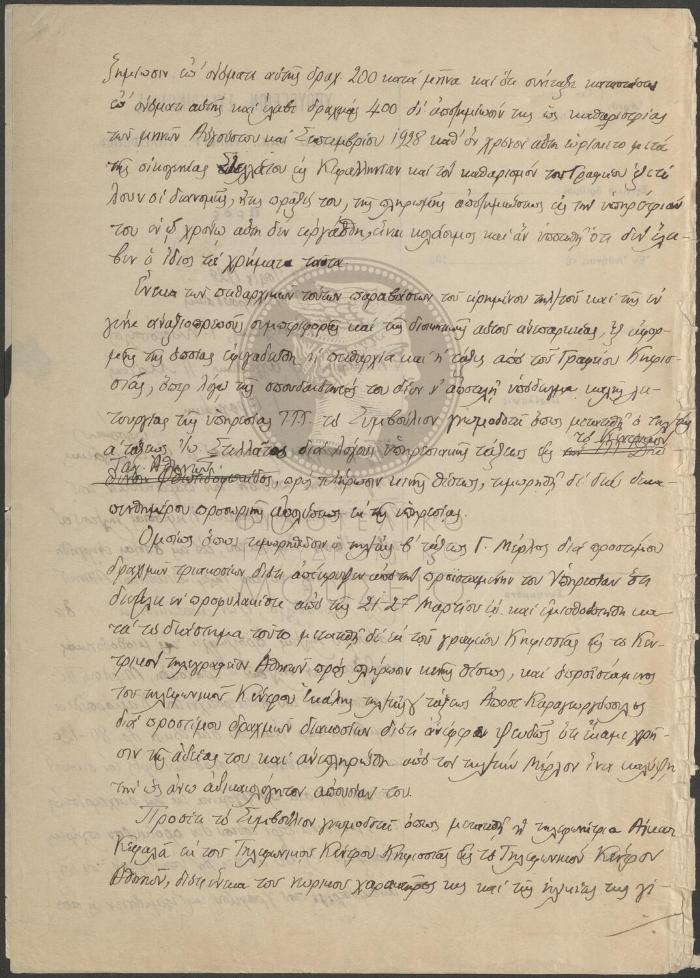 ζημίωσιν ἐπ' ὀνόματι αὐτῆς δραχ. 200 κατὰ μῆνα καὶ ὅτι συνέταξε καταστάσεις
ἐπ' ὀνόματι αὐτῆς καὶ ἔλαβε δραχμὰς 400 δι' ἀποζημίωσίν της ὡς καθαριστρίας
τῶν μηνῶν Αὐγούστου καὶ Σεπτεμβρίου 1928 καθ' ὃν χρόνον αὕτη εὑρίσκετο μετὰ
τῆς οἰκογενείας Στελλάτου εἰς Κεφαλληνίαν καὶ τὸν καθαρισμὸν τοῦ Γραφείου ἐξετέ
λουν οἱ διανομεῖς, ἡ πρᾶξίς του, τῆς πληρωμῆς ἀποζημιώσεως εἰς τὴν ὑπηρέτριάν
του ἐν ᾧ χρόνῳ αὕτη δὲν εἰργάσθη, εἶναι κολάσιμος καὶ ἂν ὑποτεθῇ ὅτι δὲν ἔλα-
βεν ὁ ἴδιος τὰ χρήματα ταῦτα.
Ἕνεκα τῶν πειθαρχικῶν τούτων παραβάσεων τοῦ εἰρημένου τηλ/τοῦ καὶ τῆς ἐν
γένει ἀναξιοπρεποῦς συμπεριφορᾶς καὶ τῆς διοικητικῆς αὐτοῦ ἀνεπαρκείας, ἐξ ἀφορ-
μῆς τῆς ὁποίας ἡ πειθαρχία καὶ ἡ τάξις ἀπὸ τοῦ Γραφείου Κηφισ-
σιᾶς, ὅπερ λόγῳ τῆς σπουδαιότητός του δέον ν' ἀποτελῇ ὑπόδειγμα καλῆς λει-
τουργίας τῆς ὑπηρεσίας Τ.Τ.Τ. τὸ Συμβούλιον γνωμοδοτεῖ ὅπως μετατεθῇ ὁ τηλ/τὴς
α' τάξεως Στελλάτος διὰ λόγους ὑπηρεσιακῆς τάξεως εἰς τὸ Κεντρικὸν
Ταχ. Ἀθηνῶν, πρὸς πλήρωσιν κενῆς θέσεως, τιμωρηθῇ δὲ διὰ δεκα-
πενθημέρου προσωρινῆς ἀπολύσεως ἐκ τῆς ὑπηρεσίας.
Ὁμοίως ὅπως τιμωρηθῶσιν ὁ τηλ/τὴς β' τάξεως Γ. Μέρλος διὰ προστίμου
δραχμῶν τριακοσίων διότι ἀπέκρυψεν ἀπὸ τὴν προϊσταμένην του Ὑπηρεσίαν ὅτι
διετέλει ἐν προφυλακίσει ἀπὸ τῆς 21-27 Μαρτίου ἐ.ἔ. καὶ ἐμισθοδοτήθη κα-
τὰ τὸ διάστημα τοῦτο μετατεθῇ δὲ ἐκ τοῦ γραφείου Κηφισσιᾶς εἰς τὸ Κεν-
τρικὸν τηλεγραφεῖον Ἀθηνῶν πρὸς πλήρωσιν κενῆς θέσεως, καὶ ὁ προϊστάμενος
τοῦ τηλεφωνικοῦ Κέντρου Ἑκάλης τηλ/τὴς γ' τάξεως Ἀποστ. Καραγεωργόπουλος
διὰ προστίμου δραχμῶν διακοσίων διότι ἀνέφερεν ψευδῶς ὅτι ἔκαμε χρῆ-
σιν τῆς ἀδείας του καὶ ἀνεπληρώθη ἀπὸ τὸν τηλ/τὴν Μέρλον ἵνα καλύψῃ
τὴν ὡς ἄνω ἀδικαιολόγητον ἀπουσίαν του.
Προσέτι τὸ Συμβούλιον γνωμοδοτεῖ ὅπως μετατεθῇ ἡ τηλεφωνήτρια Αἰκατ.
Κεφαλᾶ ἐκ τοῦ Τηλεφωνικοῦ Κέντρου Κηφισσιᾶς εἰς τὸ Τηλεφωνικὸν Κέντρον
Ἀθηνῶν, διότι ἕνεκα τοῦ νευρικοῦ χαρακτῆρος της καὶ τῆς ἡλικίας της γί-